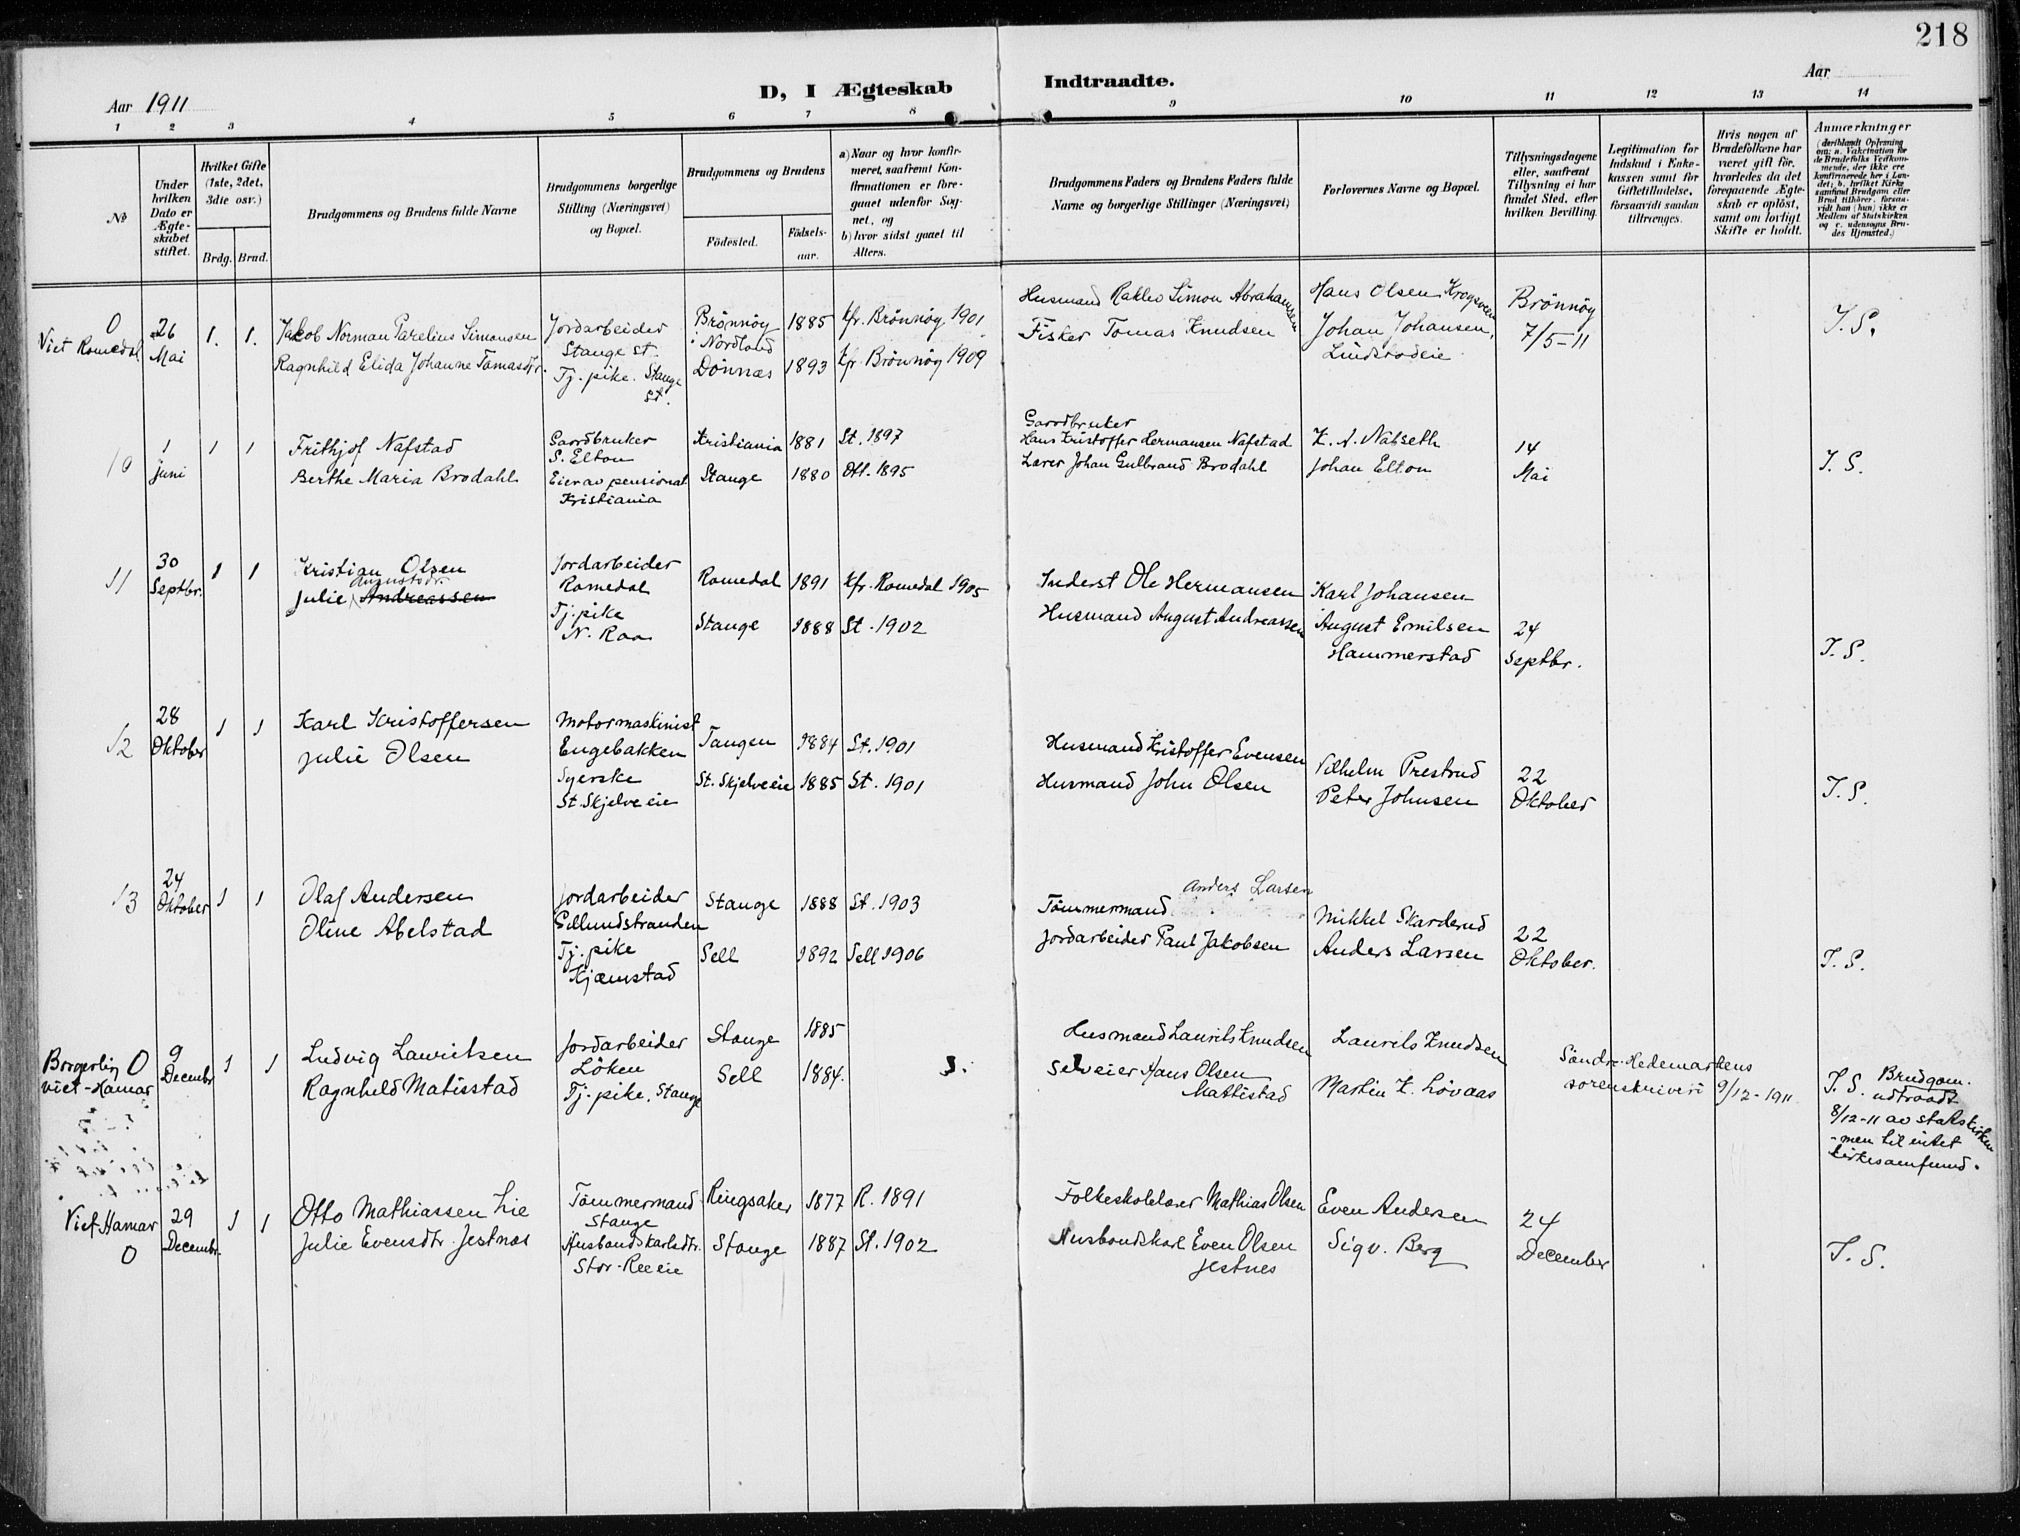 218
Aar 1911
D, I Ægteskab Indtraadte.
Aar
1 2 3 4 5 6 7 8 9 10 11 12 13 14
No
Under hvilken Dato er Ægteskabet stiftet.
Hvilket Gifte (1ste, 2det, 3die osv.)
Brdg. Brud.
Brudgommens og Brudens fulde Navne
Brudgommens borgerlige Stilling (Næringsvei) og Bopæl.
Brudgommens og Brudens
Födested.
Födselsaar.
a) Naar og hvor konfirmeret, saafremt Konfirmationen er foregaaet udenfor Sognet, og
b) hvor sidst gaaet til Alters.
Brudgommens Faders og Brudens Faders fulde Navne og borgerlige Stillinger (Næringsvei)
Forlovernes Navne og Bopæl.
Tillysningsdagene eller, saafremt Tillysning ei har fundet Sted, efter hvilken Bevilling.
Legitimation for Indskud i Enkekassen samt for Giftetilladelse, forsaavidt saadan tiltrænges.
Hvis nogen af Brudefolkene har været gift för, hvorledes da det foregaaende Ægteskab er oplöst, samt om lovligt Skifte er holdt.
Anmærkninger
(deriblandt Oplysning om: a. Vakcination for de Brudefolks Vedkommende, der ikke ere konfirmerede her i Landet; b. hvilket Kirkesamfund Brudgom eller Brud tilhörer, forsaavidt han (hun) ikke er Medlem af Statskirken og c. udensogns Brudes Hjemsted.)
0
Viet Romedal
26 Mai
1. 1.
Jakob Norman Parelius Simonsen
Ragnhild Elida Johanne Tomasdtr.
Jordarbeider
Stange st.
Tj. pike. Stange st.
Brønnøy i Nordland 1885 kfr. Brønnøy 1901
Dønnæs 1893 kfr. Brønnøy 1909
Husmand Simon Abrahamsen
Fisker Tomas Knudsen
Hans Olsen
Johan Johansen,
Brönnöy
7/5-11
I. S.
10
1 Juni
1 1
Frithjof Nafstad
Berthe Maria Brodahl
Gaardbruker
S. Elton
Eier av pensionat
Kristiania
Kristiania 1881 St. 1897
Stange 1880 Ott. 1895
Gaardbruker
Hans Kristoffer Hermansen Nafstad
Lærer Johan Gulbrand Brodahl
K. A. Nabseth
Johan Elton
14
Mai
I. S.
11
30 Septbr.
1 1
Kristian Olsen
Augustsdr.
Julie Andreassen
Jordarbeider
Romedal
Tj. pike
N. Raa
Romedal 1891 kfr. Romedal 1905
Stange 1888 St. 1902
Inderst Ole Hermansen
Husmand August Andreassen
Karl Johansen
August Emilsen
Hammerstad
24
Septbr.
I. S.
12
28 Oktober
1 1
Karl Kristoffersen
Julie Olsen
Motormaskinist
Engebakken
Syerske
St. Skjelve eie
Tangen 1884 St. 1901
St. Skjelveeie 1885 St. 1901
Husmand Kristoffer Evensen
Husmand John Olsen
Vilhelm Prestrud
Peter Johnsen
22
Oktober
I. S.
13
24 Oktober
1 1
Olaf Andersen
Oline Abelstad
Jordarbeider
Gillundstranden
Tj. pike
Kjæmstad
Stange 1888 St. 1903
Sell 1892 Sell 1906
Anders Larsen
Tömmermand
Jordarbeider Paul Jakobsen
Mikkel Skarderud
Anders Larsen
22
Oktober.
I. S.
Borgerlig 0
viet-Hamar
9 Decembr
1 1
Ludvig Lauritsen
Ragnhild Matisstad
Jordarbeider
Löken
Tj. pike. Stange
Stange 1885
Sell 1884.
S.
Husmand Laurits Knudsen
Selveier Hans Olsen
Mattistad
Laurits Knudsen
Martin K. Lövaas
Söndre Hedemarkens
sorenskriveri 9/12-1911
I. S. Brudgom.
udtraadt
8/12-11 av statskirken
- men til intet
kirkesamfund.
Viet-Hamar
0
29 Decembr.
1 1
Otto Mathiassen Lie
Julie Evensdtr. Jestnæs
Tömmermand
Stange
Husbondskarlsdtr.
Stor-Ree eie
Ringsaker 1877 R. 1891
Stange 1887 St. 1902
Folkeskolelærer Mathias Olsen
Husbondskarl Even Olsen
Jestnes
Even Andersen
Sigv. Berg
24
December
I. S.